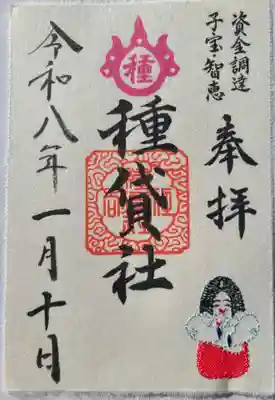 資金調達
子宝・智恵
奉拝
種
種貸社
令和八年一月十日